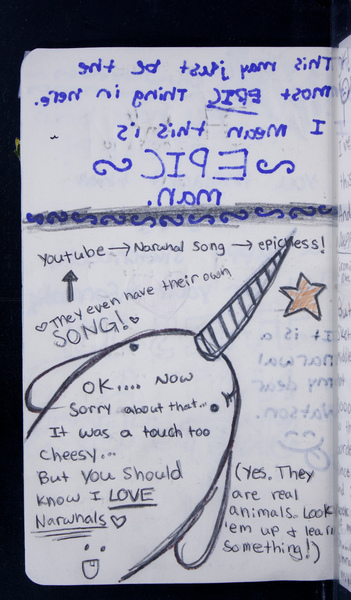 This may just be the
most EPIC thing in here.
I mean this is
~EPIC~
man.
Youtube → Narwhal Song → epicness!
♡They even have their own
SONG!♡
OK.... NOW
Sorry about that...
It was a touch too
cheesy...
But you should
know I LOVE
Narwhals ♡
(Yes. They
are real
animals. Look
'em up & learn
something!)
It is a
narwal
my dear
Watson.